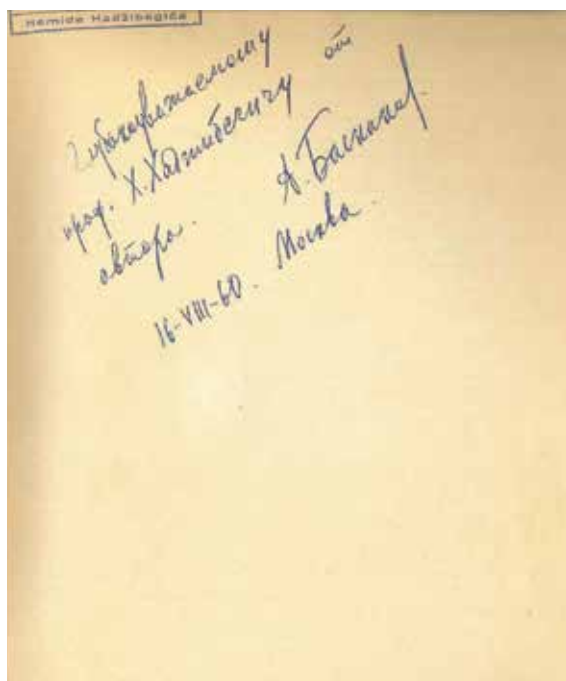 Hamida Hadžibegića
Глубокоуважаемому
проф. Х. Хаджибегичу от
автора. А. Баскаков.
16-VIII-60. Москва.